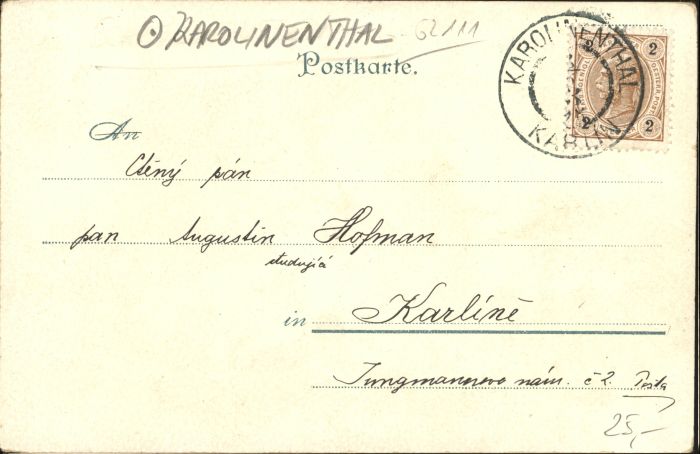 ⊙ KAROLINENTHAL 62/11
Postkarte.
KAROLINENTHAL
KARLIN
2 2
2 2
An
Ctěný pán
pan Augustin Hofman
studující
in Karlíně
Jungmannovo nám. č 2. Pošta
25,-